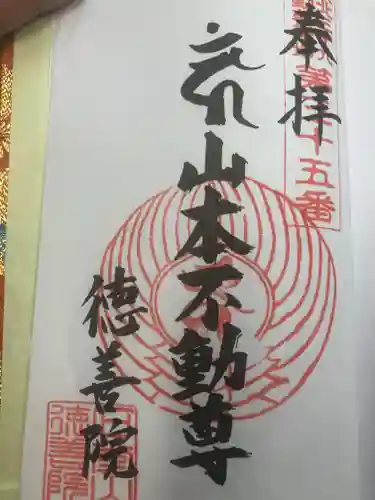 奉拝
十五番
山本不動尊
徳善院
徳善院